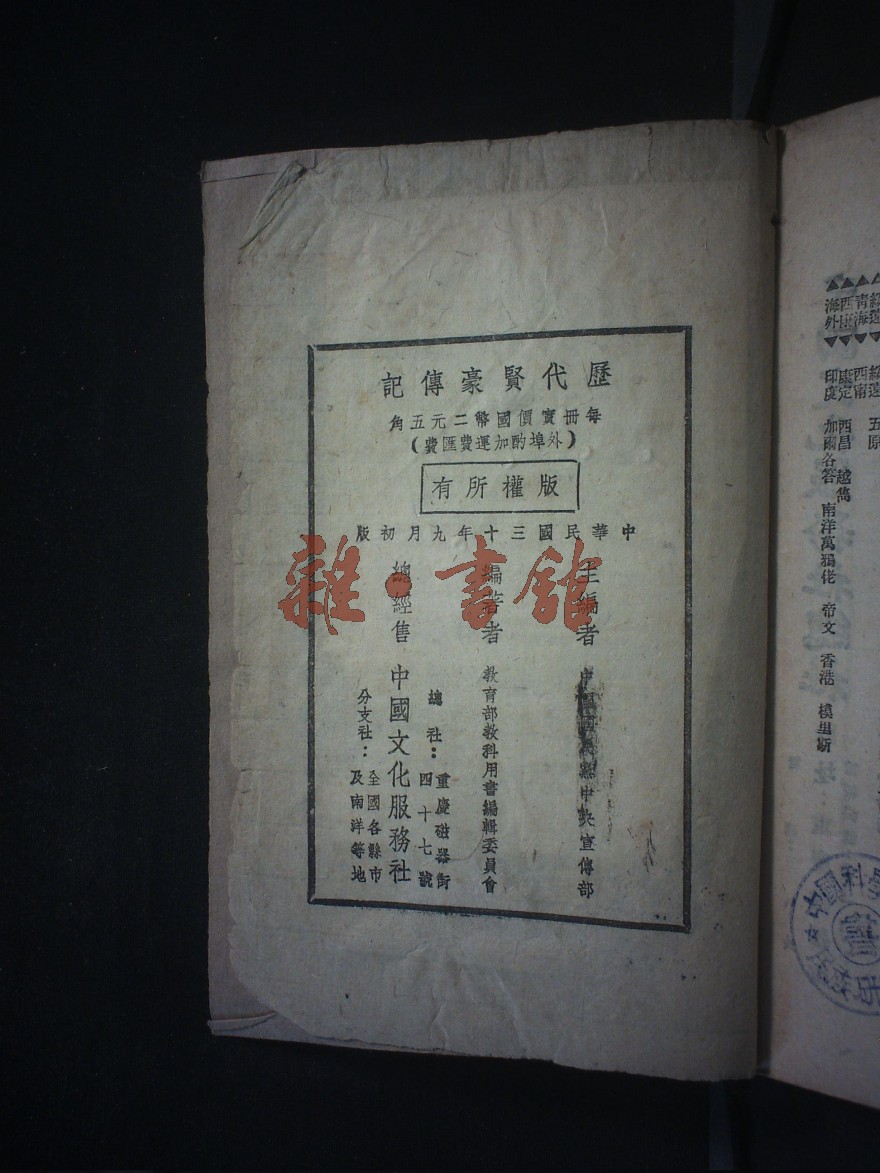 歷代賢豪傳記
每冊實價國幣二元五角
(外埠酌加運費匯費)
版權所有
中華民國三十年九月初版
主編者 中國國民黨中央宣傳部
編著者 教育部教科用書編輯委員會
總經售 中國文化服務社
總社：重慶磁器街四十七號
分支社：全國各縣市及南洋等地
雜書館
綏遠 綏遠 五原
青海 西甯
西康 康定 西昌 越雋
海外 印度 加爾各答 南洋萬鴉佬 帝文 香港 模里斯